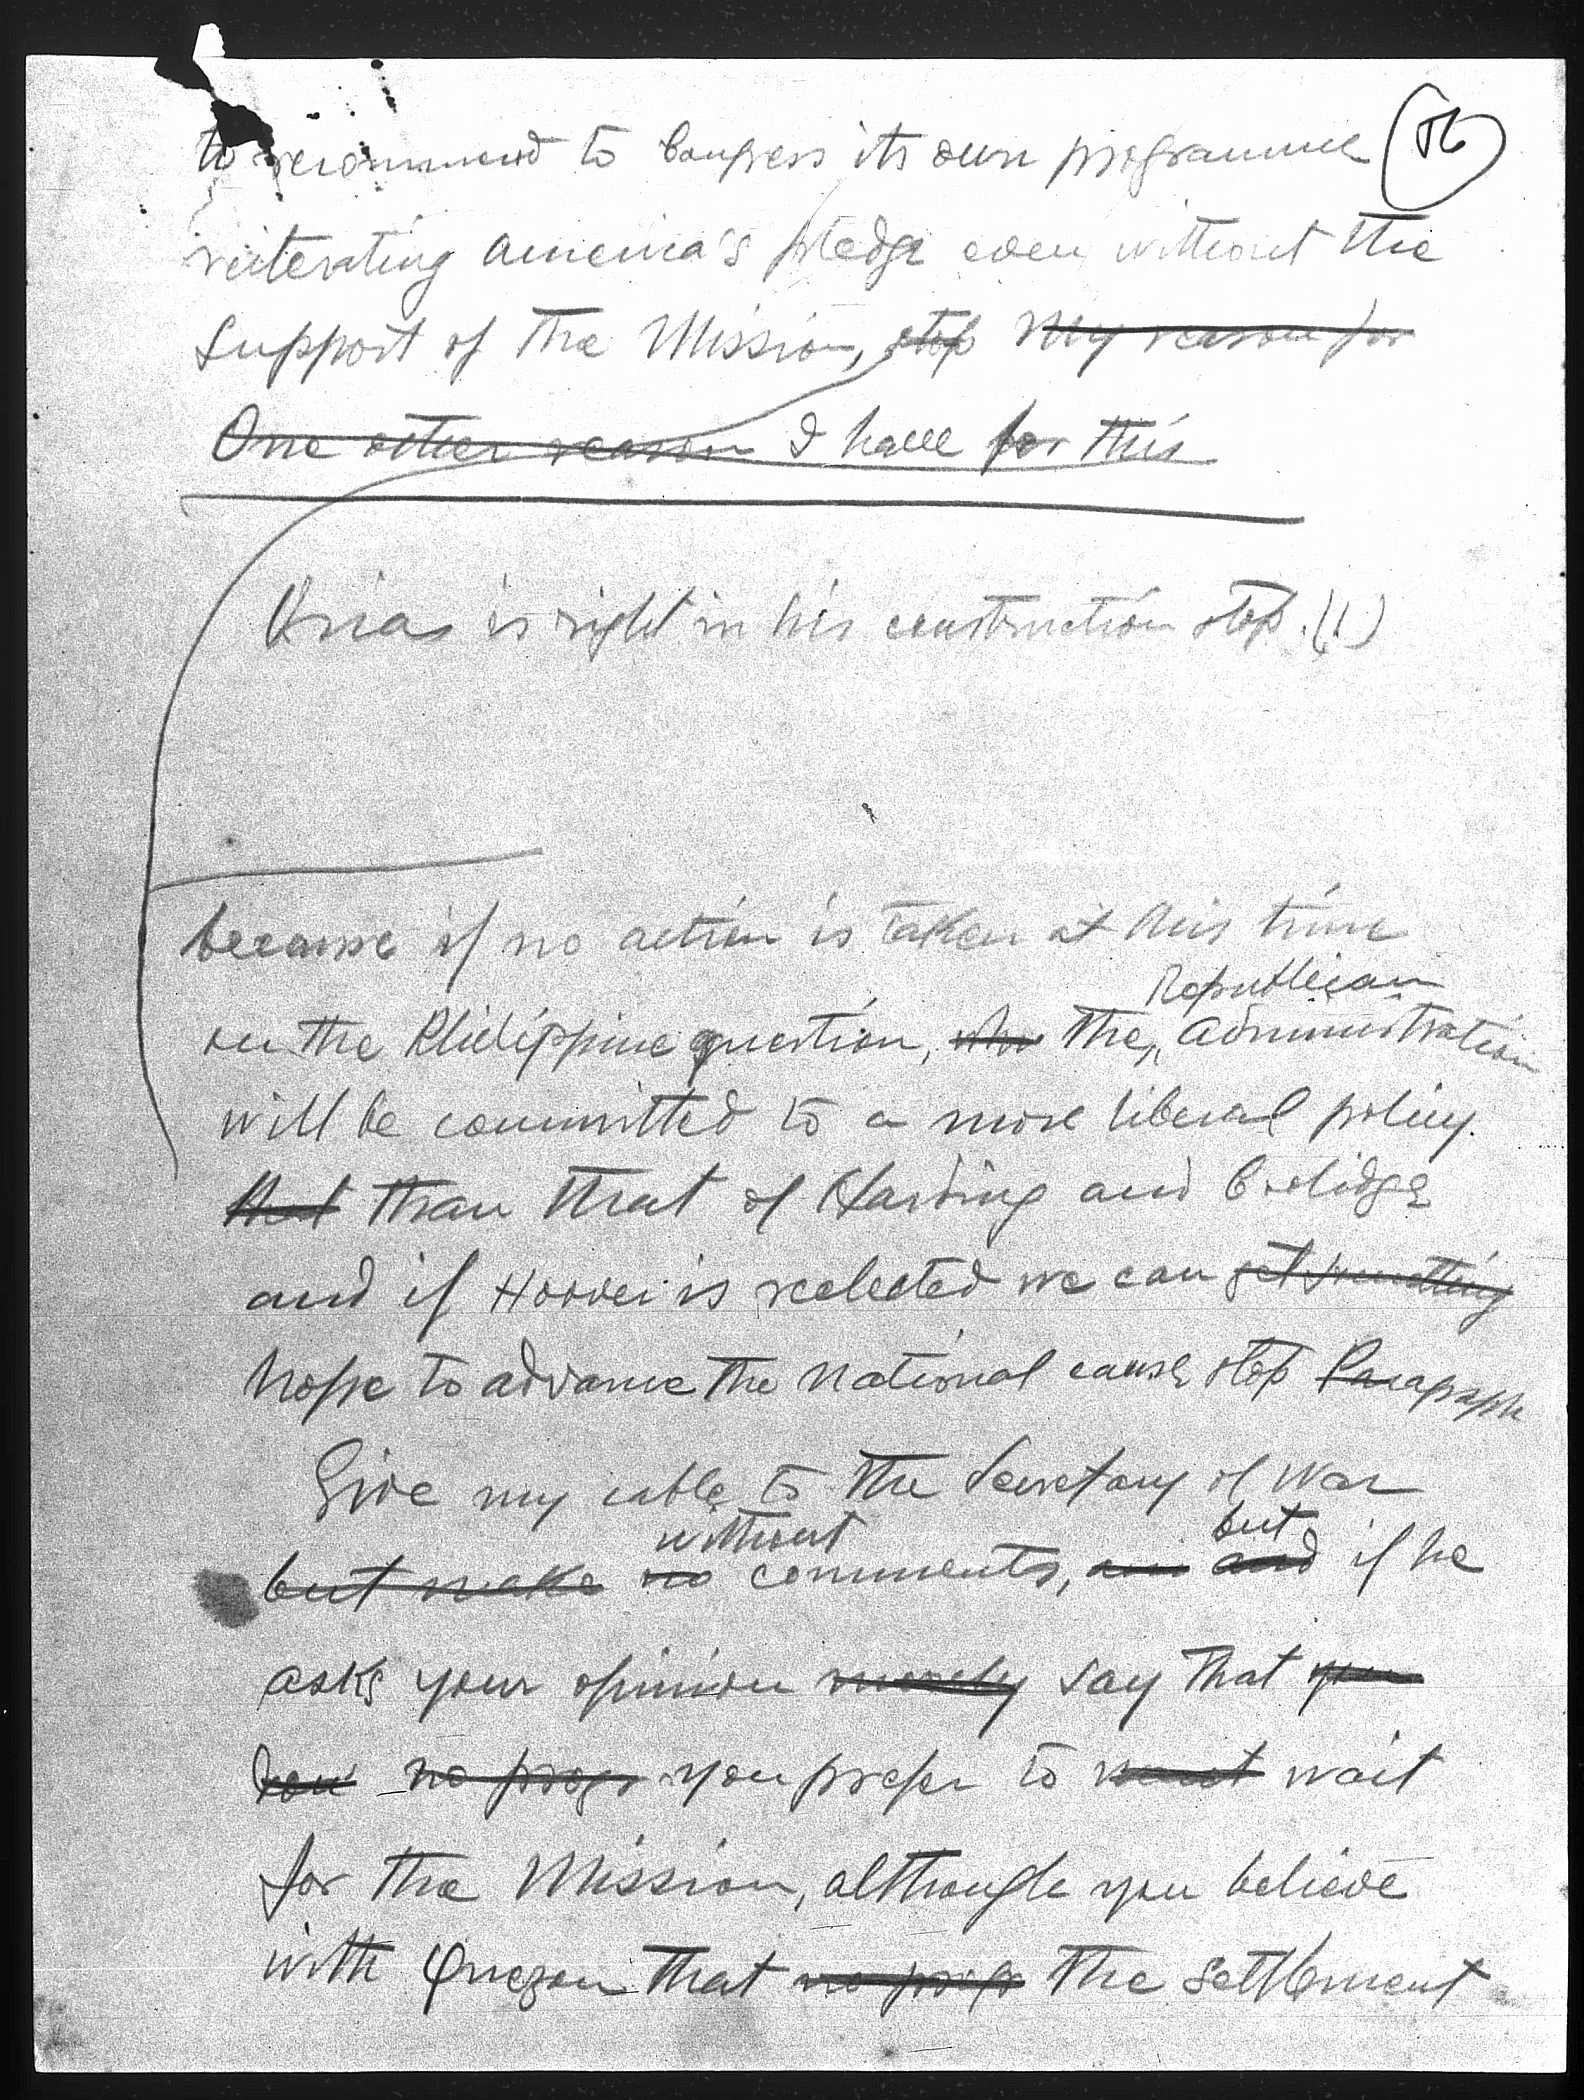 to recommend to Congress its own programme
reiterating America's pledge even without the
support of the Mission, stop My reason for
One other reason I have for this
is right in his construction stop. (1)
because if no action is taken at this time
on the Philippine question, the Republican administration
will be committed to a more liberal policy.
that than that of Harding and Coolidge
and if Hoover is reelected we can get something
hope to advance the national cause stop Paragraph
Give my cable to the Secretary of War
but make no without comments, and but if he
asks your opinion merely say that you
no you prefer to wait
for the Mission, although you believe
with Quezon that the settlement